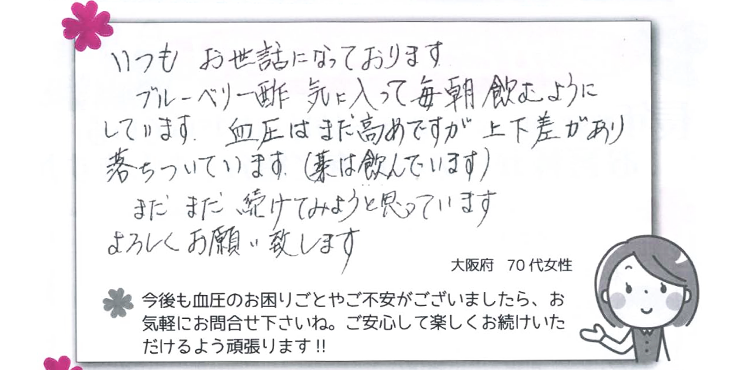 いつも お世話になっております
ブルーベリー酢 気に入って毎朝飲むように
しています. 血圧はまだ高めですが上下差があり
落ちついています.(薬は飲んでいます)
まだまだ続けてみようと思っています
よろしくお願い致します
大阪府 70代女性
今後も血圧のお困りごとやご不安がございましたら、お
気軽にお問合せ下さいね。ご安心して楽しくお続けいた
だけるよう頑張ります!!